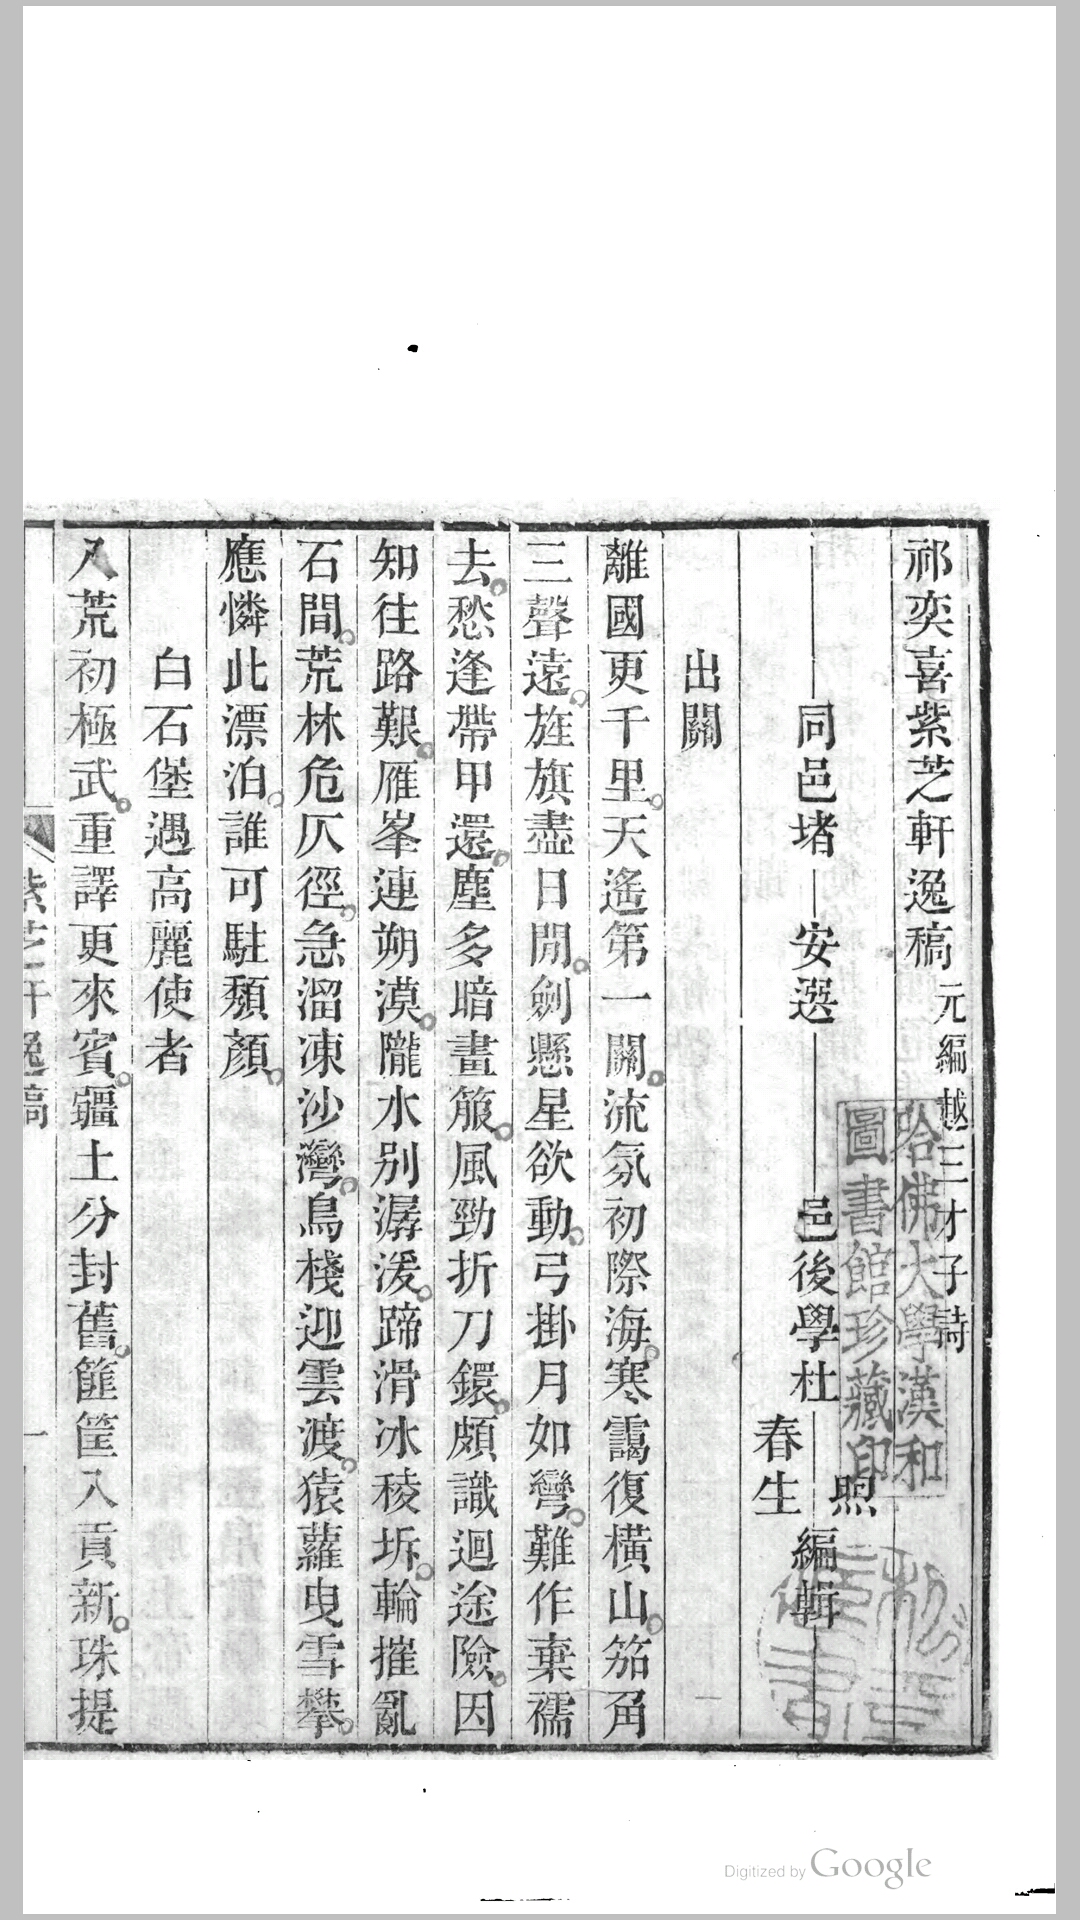 祁奕喜紫芝軒逸稿 元編越三才子詩
同邑堵 安選
邑後學杜 煦 春生 編輯
出關
離國更千里天遙第一關流氛初際海寒靄復橫山笳角
三聲遠旌旗盡日閒劍懸星欲動弓掛月如彎難作棄襦
去愁逢帶甲還塵多暗畫箙風勁折刀鐶頗識迴途險因
知往路艱雁峯連朔漠隴水別潺湲蹄滑冰稜坼輪摧亂
石間荒林危仄徑急溜凍沙灣鳥棧迎雲渡猿蘿曳雪攀
應憐此漂泊誰可駐頹顏
白石堡遇高麗使者
八荒初極武重譯更來賓疆土分封舊篚筐入貢新珠提
紫芝軒逸稿 一
哈佛大學漢和
圖書館珍藏印
Digitized by Google